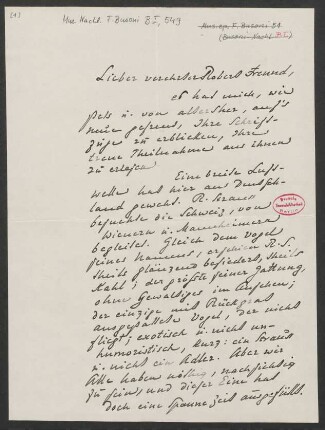 [1]
Mus. Nachl. F. Busoni B I, 549
Mus. ep. F. Busoni 51
(Busoni-Nachl. B I)
Lieber verehrter Robert Freund,
es hat mich, wie
stets u. von altersher, auf's
neue gefreut, Ihre Schrift-
züge zu erblicken, Ihre
treue Theilnahme aus ihnen
zu ersehen
Eine breite Luft-
welle hat hier aus Deutsch-
land geweht. R. Strauss
besuchte die Schweiz, von
Wienern u. Mannheimern
begleitet. Gleich dem Vogel
seines Namens, erschien R. S.
theils glänzend befiedert, theils
kahl; der größte seiner Gattung,
ohne Gewaltiges im Ansehen;
der einzige mit Rückgrat
ausgestattete Vogel, der nicht
fliegt; exotisch u. nicht un-
humoristisch, kurz: ein Strauss
u. nicht ein Adler. Aber wir
Alle haben nöthig, nachsichtig
zu sein, und dieser Eine hat
doch eine Spanne Zeit ausgefüllt.